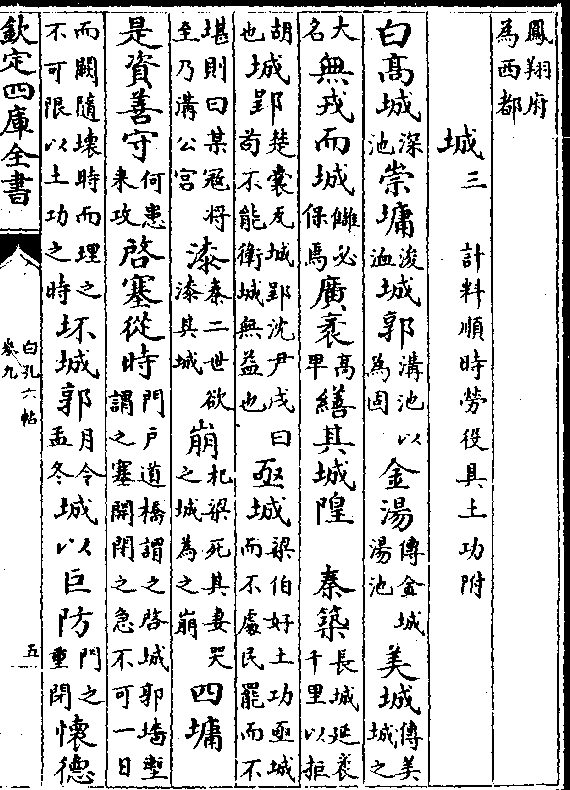 鳳翔府為西都
城三 計料順時勞役具土功附
白高城深池崇墉浚洫城郭溝池以為固金湯傳金城湯池美城傳美城之
大名無戎而城讎必保焉廣袤高卑繕其城隍 秦築長城延袤千里以拒
胡也城郢楚囊瓦城郢沈尹戌曰苟不能衛城無益也亟城梁伯好土功亟城而不處民罷而不
堪則曰某冦將至乃溝公宮漆秦二世欲漆其城崩杞梁死其妻哭之城為之崩四墉
是資善守何患來攻啓塞從時門戶道橋謂之啓城郭墻塹謂之塞開閉之急不可一日
而闕隨壞時而理之不可限以土功之時坏城郭月令孟冬城以巨防門之重閉懷德
欽定四庫全書
白孔六帖
卷九
五